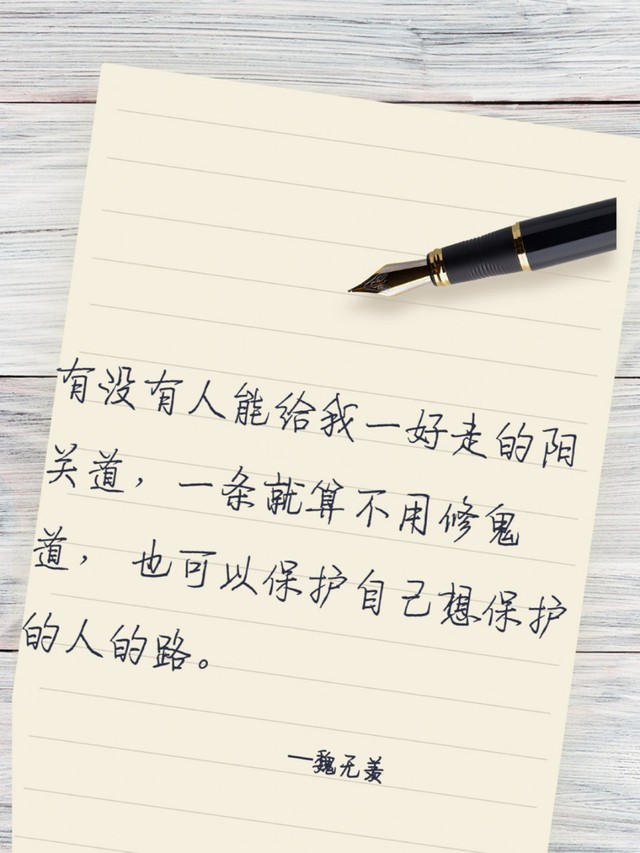 有没有人能给我一好走的阳
关道，一条就算不用修鬼
道，也可以保护自己想保护
的人的路。
一魏无羡